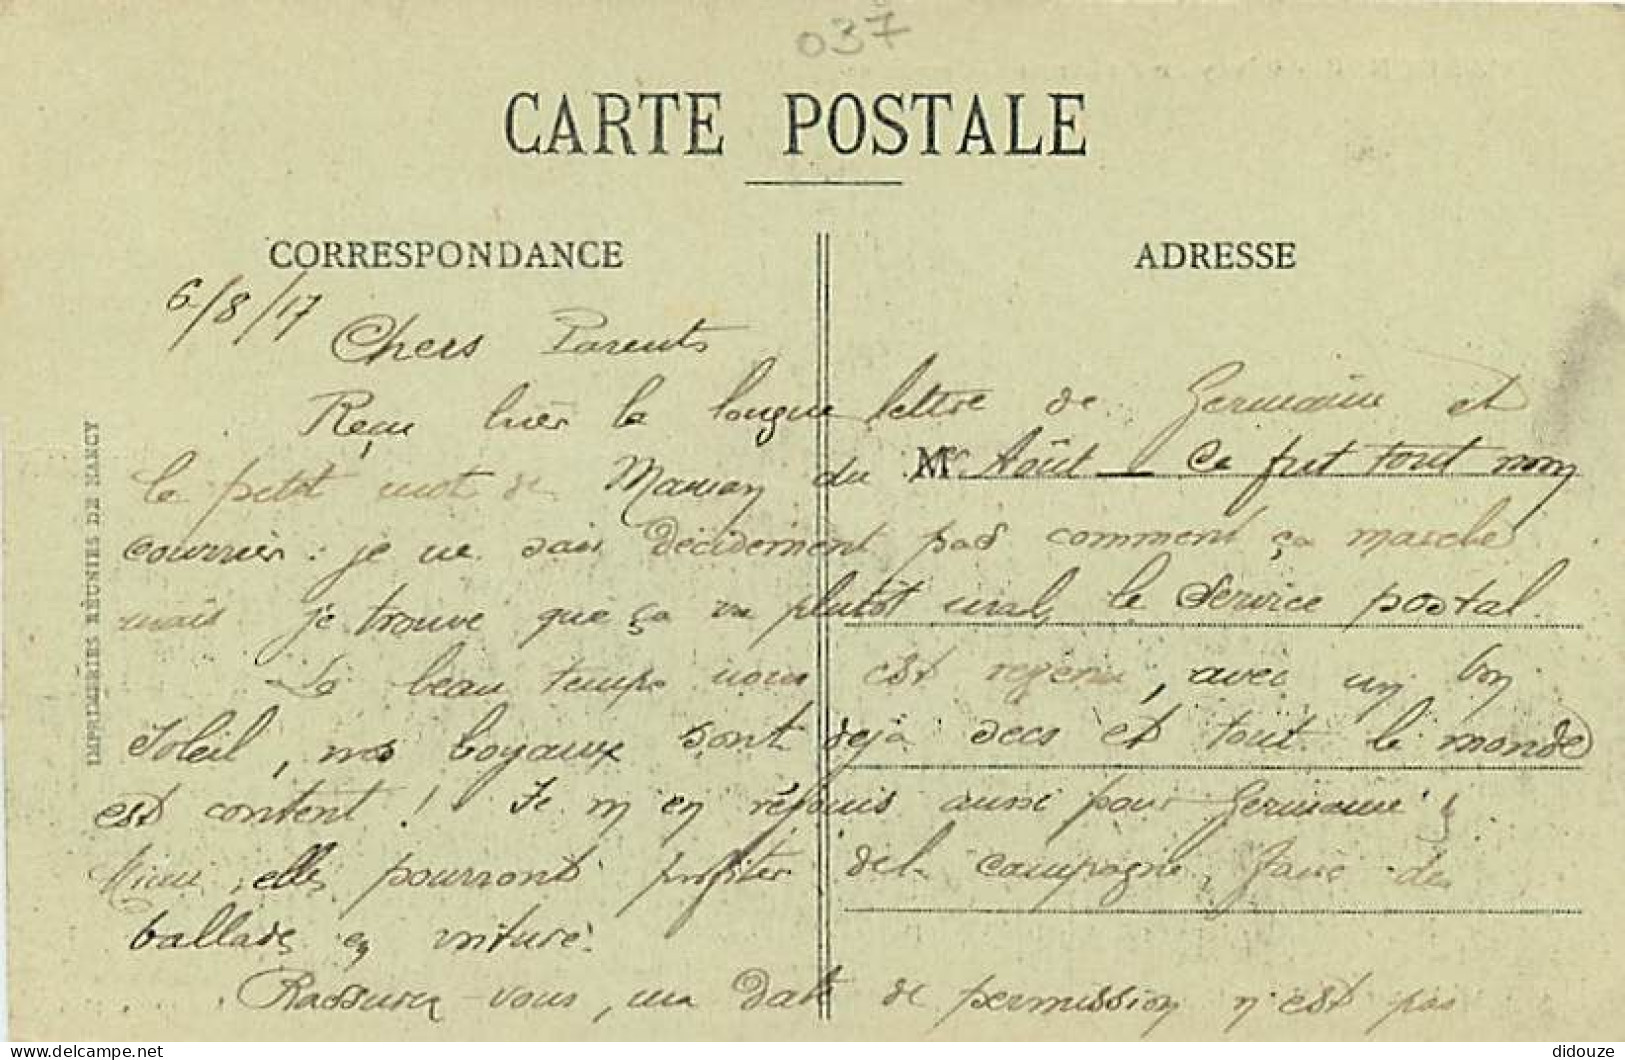 037
CARTE POSTALE
CORRESPONDANCE
ADRESSE
6/8/17
Chers Parents
Reçu hier la longue lettre de Germaine et
le petit mot de Maman du M Août — Ce fut tout mon
courrier : je ne sais décidement pas comment ça marche
mais je trouve que ça va plutôt mal, le Service postal.
Le beau temps nous est revenu, avec un bon
Soleil, nos boyaux sont déjà secs et tout le monde
est content ! Je m'en réjouis aussi pour Germaine &
elles pourront profiter de la campagne, faire des
ballades en voiture.
Rassurez-vous, ma date de permission n'est pas
IMPRIMERIES RÉUNIES DE NANCY
didouze